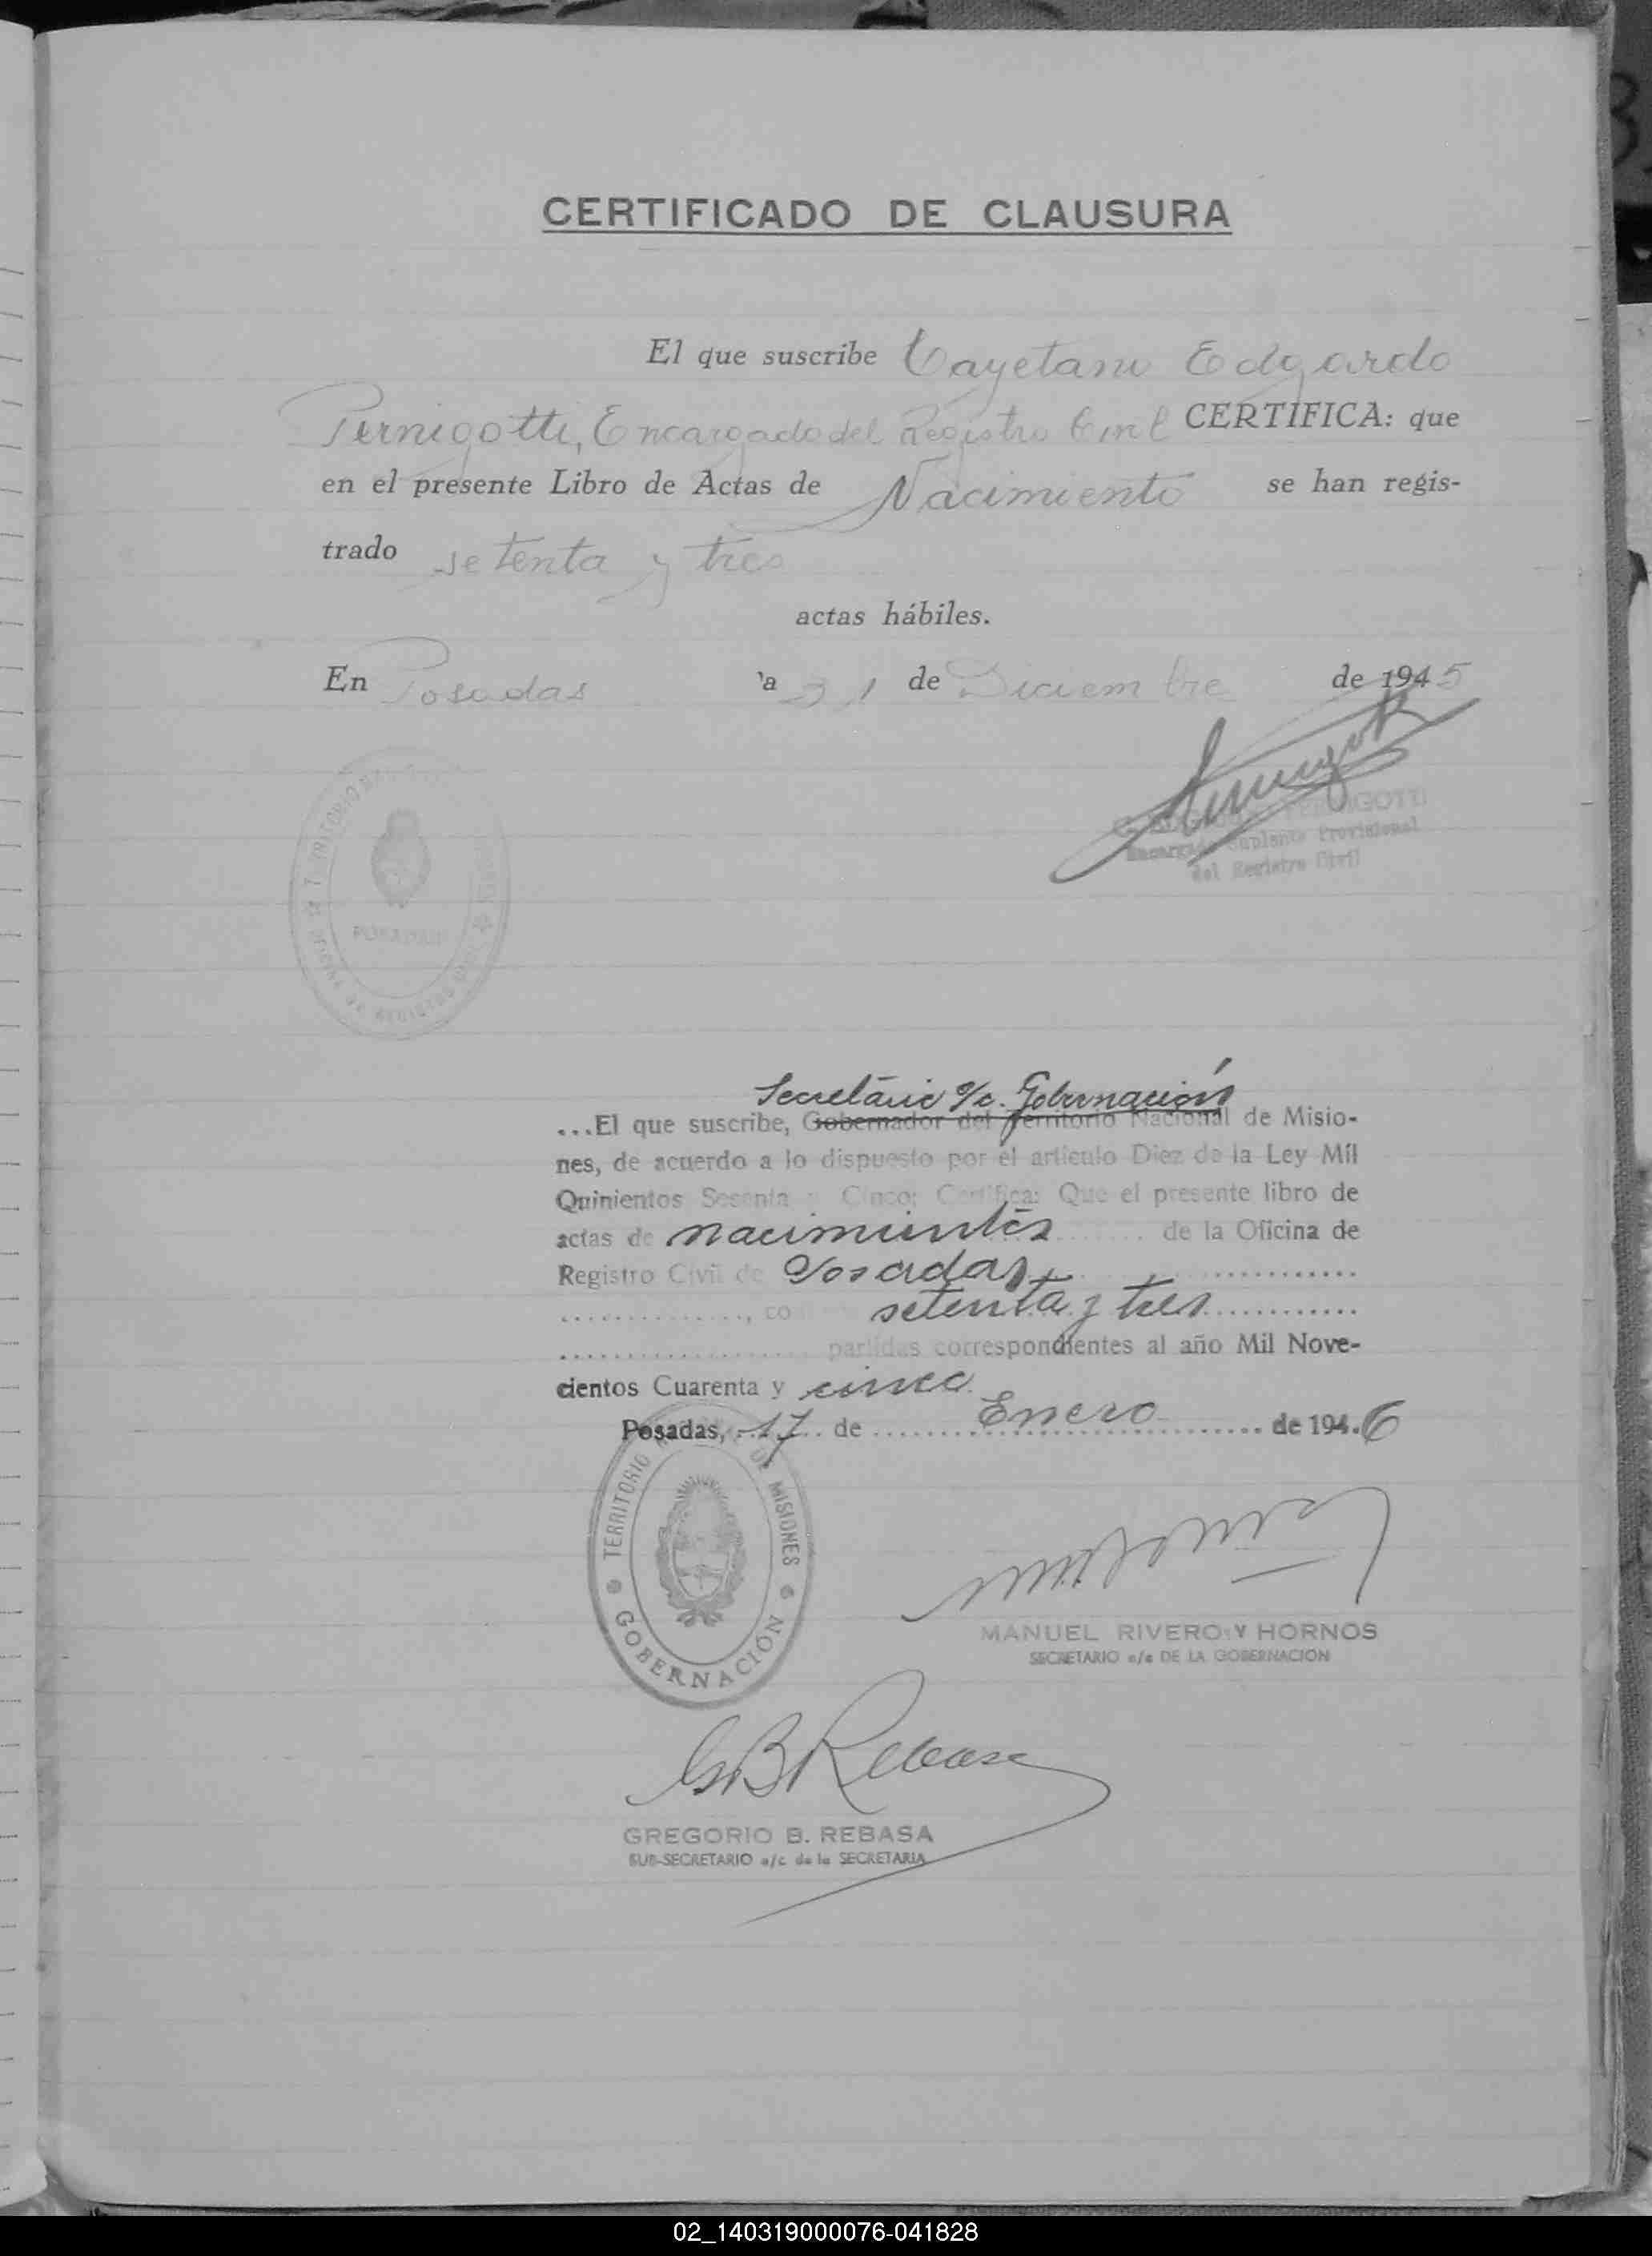 CERTIFICADO DE CLAUSURA
El que suscribe Cayetano Edgardo
Pernigotti, Encargado del Registro Civil CERTIFICA: que
en el presente Libro de Actas de Nacimiento se han regis-
trado setenta y tres
actas hábiles.
En Posadas a 31 de Diciembre de 1945
PERNIGOTTI
Encargado Suplente Provisional
del Registro Civil
TERRITORIO
POSADAS
OFICINA DE REGISTRO CIVIL
Secretario a/c. Gobernación
...El que suscribe, Gobernador del Territorio Nacional de Misio-
nes, de acuerdo a lo dispuesto por el artículo Diez de la Ley Mil
Quinientos Sesenta y Cinco; Certifica: Que el presente libro de
actas de nacimientos ....... de la Oficina de
Registro Civil de Posadas ............
.............., co setenta y tres ............
.................... partidas correspondientes al año Mil Nove-
cientos Cuarenta y cinco.
Posadas, 17 de Enero de 1946
TERRITORIO DE MISIONES
GOBERNACIÓN
MANUEL RIVERO Y HORNOS
SECRETARIO a/c DE LA GOBERNACION
GBRebasa
GREGORIO B. REBASA
SUB-SECRETARIO a/c de la SECRETARIA
02_140319000076-041828